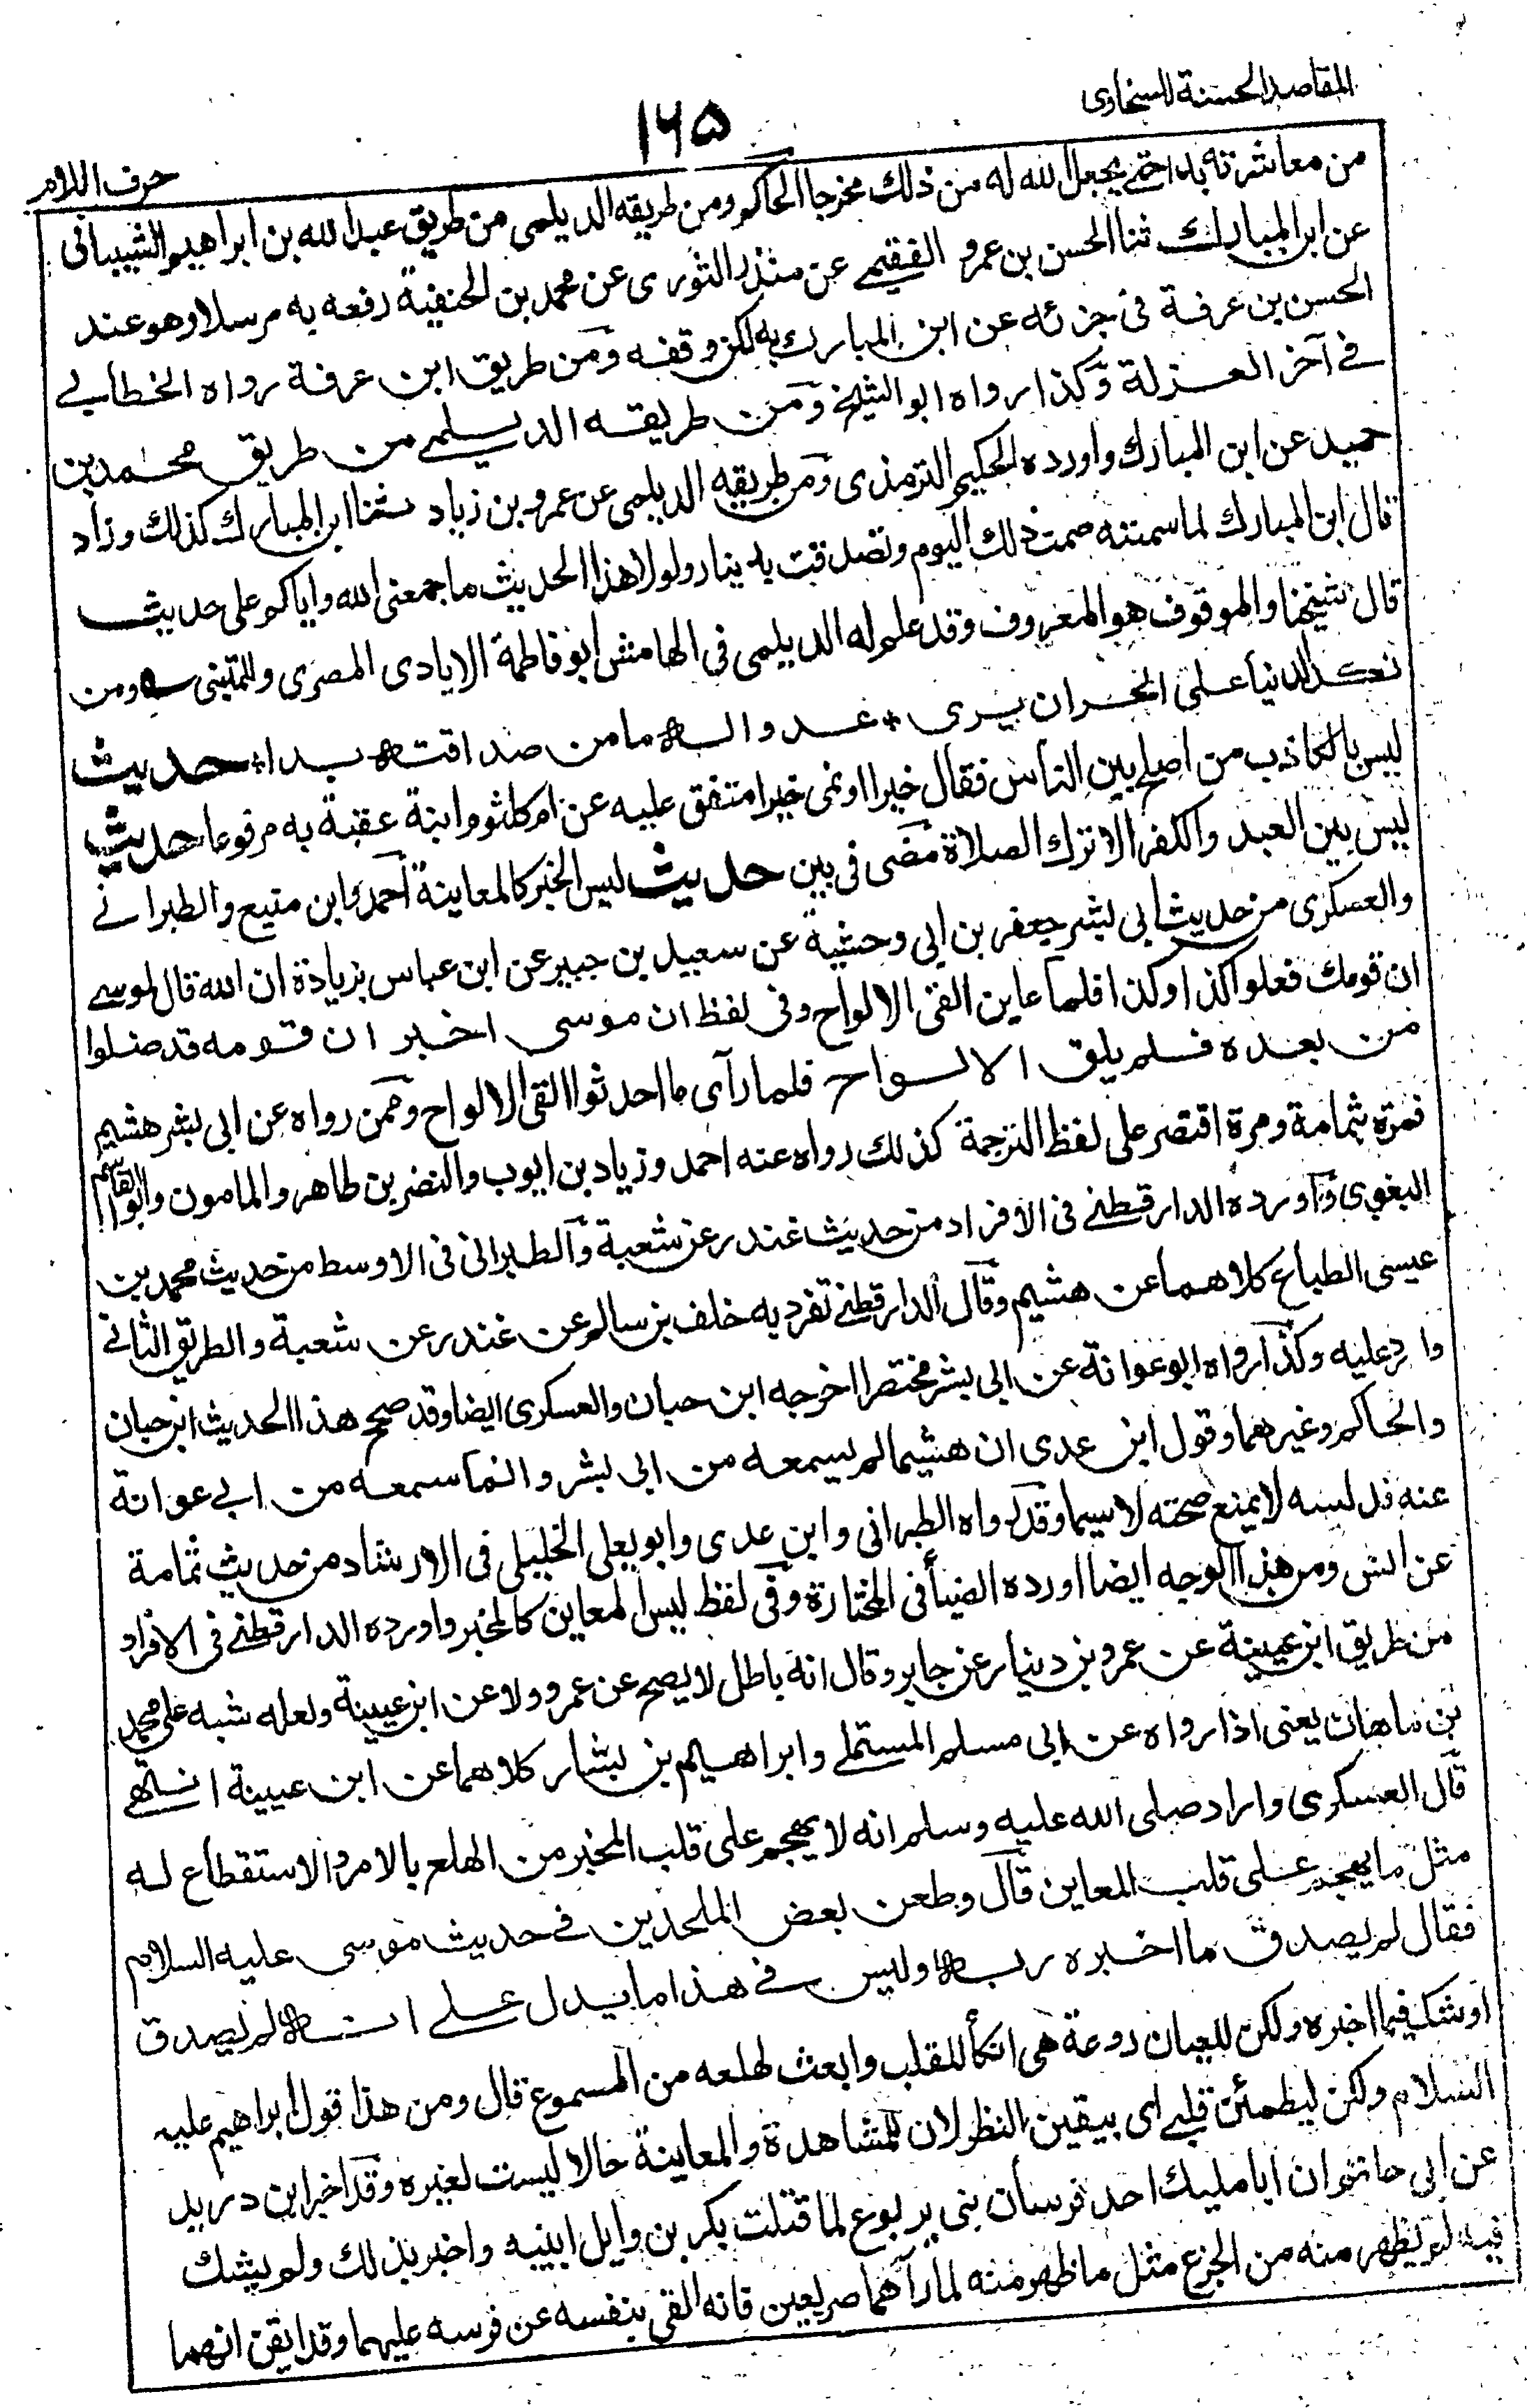 المقاصد الحسنة للسخاوى
١٦٥
حرف اللام
من معاشرته بدا حتى يجعل الله له من ذلك مخرجا الحاكم ومن طريقه الديلمى من طريق عبد الله بن ابراهيم الشيبانى
عن ابن المبارك ثنا الحسن بن عمرو الفقيمى عن منذر الثورى عن محمد بن الحنفية رفعه به مرسلا وهو عند
الحسن بن عرفة فى جزئه عن ابن المبارك به لكن وقفه ومن طريق ابن عرفة رواه الخطابى
فى آخر العزلة وكذا رواه ابو الشيخ ومن طريقه الديلمى من طريق محمد بن
حميد عن ابن المبارك واورده الحكيم الترمذى ومن طريقه الديلمى عن عمرو بن زياد ثنا ابن المبارك كذلك وزاد
قال ابن المبارك لما سمعته صمت ذلك اليوم وتصدقت بدينار ولولا هذا الحديث ما جمعنى الله واياكم على حديث
قال شيخنا والموقوف هو المعروف وقد علم له الديلمى فى الهامش ابو فاطمة الايادى المصرى وللمتنبى ومن
نكد الدنيا على الحر ان يرى * عدوا له ما من صداقته بد * حديث
ليس بالكاذب من اصلح بين الناس فقال خيرا او نمى خيرا متفق عليه عن ام كلثوم ابنة عقبة به مرفوعا حديث
ليس بين العبد والكفر الا ترك الصلاة مضى فى بين حديث ليس الخبر كالمعاينة أحمد وابن منيع والطبرانى
والعسكرى من حديث ابى بشر جعفر بن ابى وحشية عن سعيد بن جبير عن ابن عباس بزيادة ان الله قال لموسى
ان قومك فعلوا كذا وكذا فلما عاين القى الالواح وفى لفظ ان موسى اخبر ان قومه قد ضلوا
من بعده فلم يلق الالواح فلما رآى ما احدثوا القى الالواح وممن رواه عن ابى بشر هشيم
فمرة بتمامة ومرة اقتصر على لفظ الترجمة كذلك رواه عنه احمد وزياد بن ايوب والنضر بن طاهر والمامون وابو القاسم
البغوى واورده الدارقطنى فى الافراد من حديث غندر عن شعبة والطبرانى فى الاوسط من حديث محمد بن
عيسى الطباع كلاهما عن هشيم وقال الدارقطنى تفرد به خلف بن سالم عن غندر عن شعبة والطريق الثانى
وارد عليه وكذا رواه ابو عوانة عن ابى بشر مختصرا اخرجه ابن حبان والعسكرى ايضا وقد صحح هذا الحديث ابن حبان
والحاكم وغيرهما وقول ابن عدى ان هشيما لم يسمعه من ابى بشر وانما سمعه من ابى عوانة
عنه فدلسه لا يمنع صحته لا سيما وقد رواه الطبرانى وابن عدى وابو يعلى الخليلى فى الارشاد من حديث ثمامة
عن انس ومن هذا الوجه ايضا اورده الضيأ فى المختارة وفى لفظ ليس المعاين كالمخبر واورده الدارقطنى فى الافراد
من طريق ابن عيينة عن عمرو بن دينار عن جابر وقال انه باطل لا يصح عن عمرو ولا عن ابن عيينة ولعله شبه على محمد
بن ماهان يعنى اذا رواه عن ابى مسلم المستملى وابراهيم بن بشار كلاهما عن ابن عيينة انتهى
قال العسكرى واراد صلى الله عليه وسلم انه لا يهجم على قلب المخبر من الهلع بالامر والاستفظاع له
مثل ما يهجم على قلب المعاين قال وطعن بعض الملحدين فى حديث موسى عليه السلام
فقال لم يصدق ما اخبره ربه وليس فى هذا ما يدل على انه لم يصدق
او شك فيما اخبره ولكن للعيان روعة هى انكأ للقلب وابعث لهلعه من المسموع قال ومن هذا قول ابراهيم عليه
السلام ولكن ليطمئن قلبى اى بيقين النظر لان للمشاهدة والمعاينة حالا ليست لغيره وقد اخبر ابن دريد
عن ابى حاتم ان ابا مليك احد فرسان بنى يربوع لما قتلت بكر بن وايل ابنيه واخبر بذلك ولم يشك
فيه لم يظهر منه من الجزع مثل ما ظهر منه لما رآهما صريعين فانه القى بنفسه عن فرسه عليهما وقد ايقن انهما